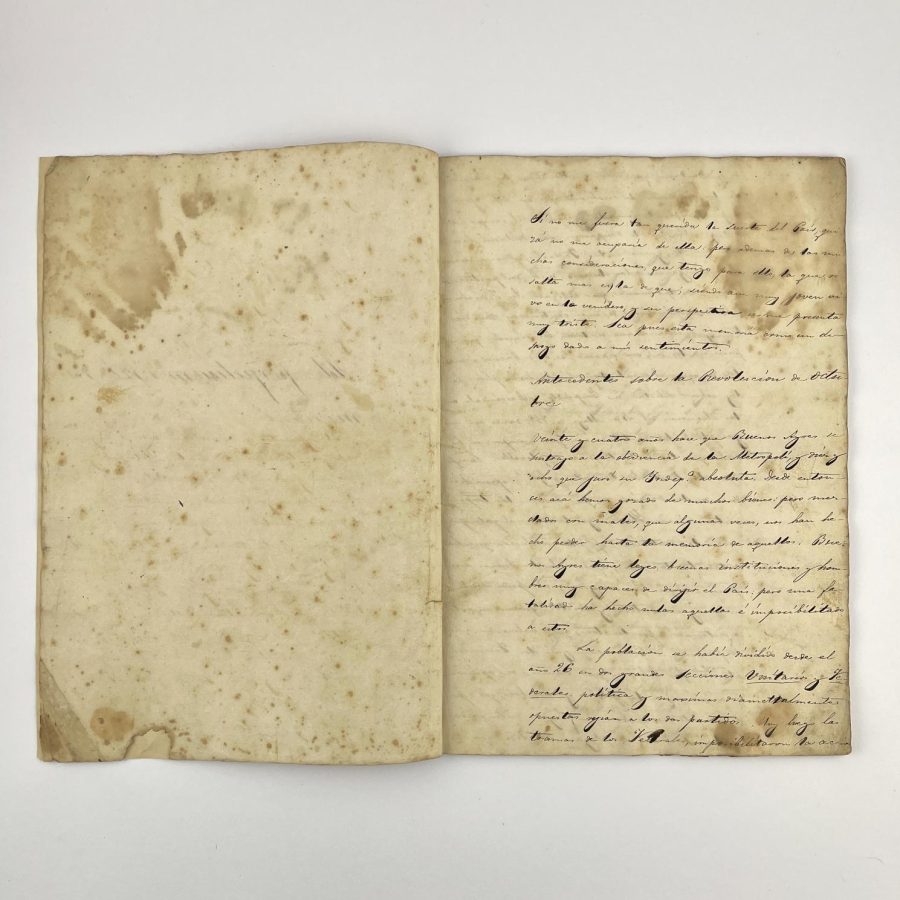 Si no me fuera tan querida la suerte del Pais, qui
zá no me ocuparia de ella: pero ademas de las mu
chas consideraciones, que tengo para ello, la que re
salta mas es la de que; siendo aun muy joven vi
vo en lo venidero, y su perspectiva se me presenta
muy triste. Sea pues esta memoria como un de
sago dado a mis sentimientos.
Antecedentes sobre la Revolucion de Octu
bre
Veinte y cuatro años hace que Buenos Ayres se
sustrajo a la obediencia de la Metropoli, y diez y
ocho que juró su Indep.ª absoluta. Desde enton
ces acá hemos gozado de muchos bienes; pero mez
clados con males, que algunas veces, nos han he
cho perder hasta la memoria de aquellos. Bue
nos Ayres tiene leyes, buenas instituciones y hom
bres muy capaces de dirigir el Pais; pero una fa
talidad ha hecho nulas aquellas é imposibilitado
a estos.
La poblacion se habia dividido desde el
año 26 en dos grandes secciones Unitarios y Fe
derales, politica y maximas diametralmente
opuestas regian a los dos partidos. la
tramas de los Federales, imposibilitaron la